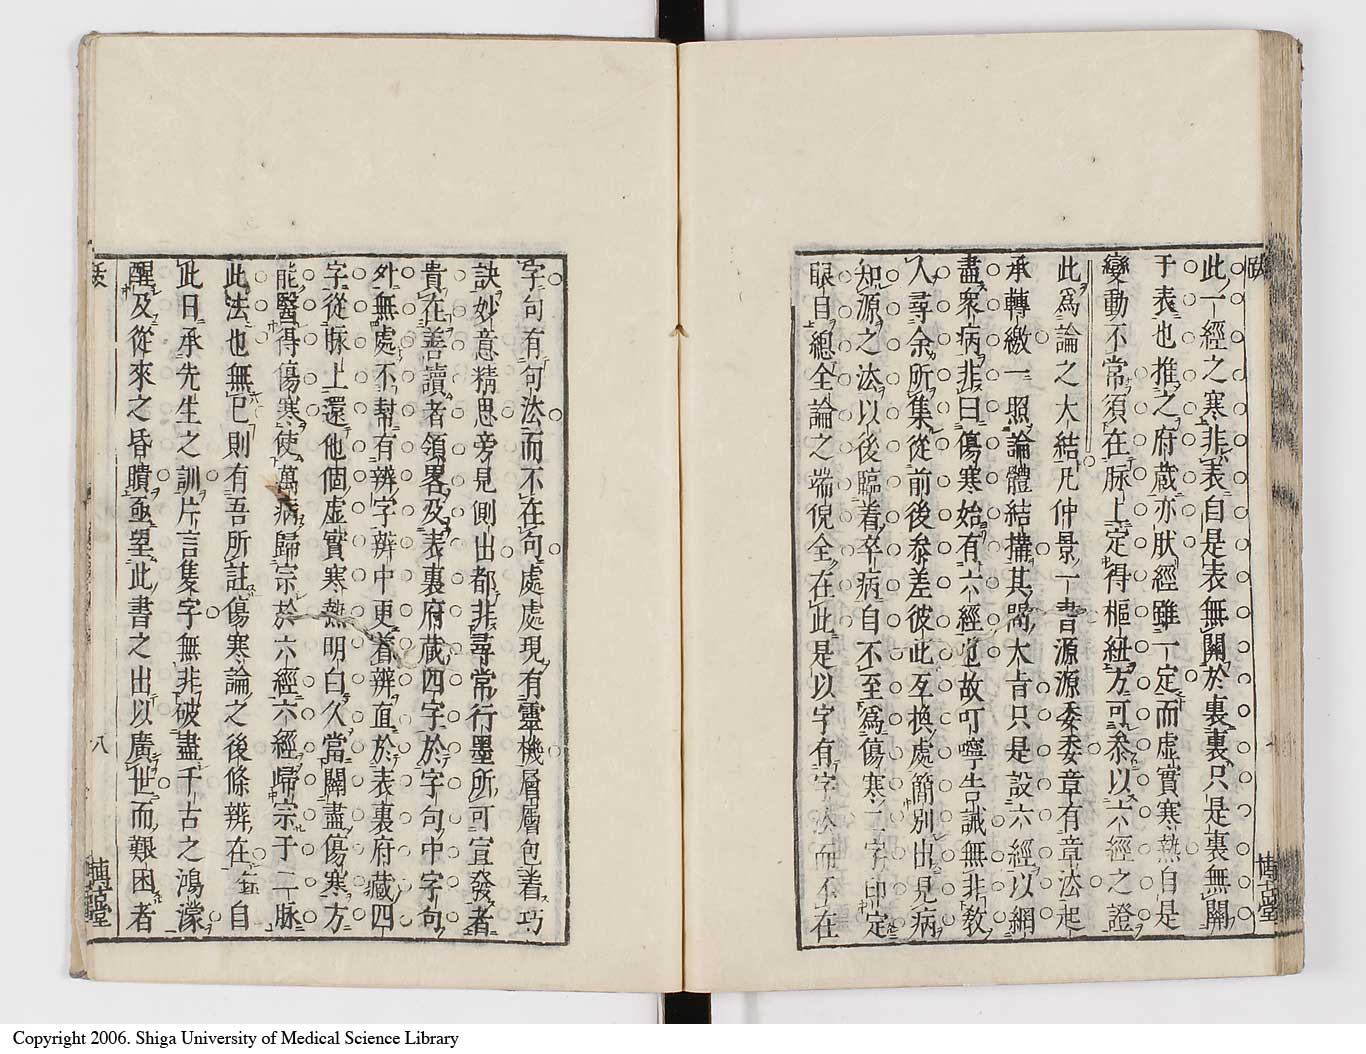 此一經之寒非表自是表無關於裏裏只是裏無關
于表也推之府蔵亦肰經雖一定而虛實寒熱自是
變動不常須在脈上定得樞紐方可叅以六經之證
此爲論之大結凡仲景一書源源委委章有章法起
承轉繳一照論體結搆其啇大㫖只是設六經以網
盡衆病非曰傷寒始有六經也故叮嚀告誡無非教
人尋余所集從前後叅差彼此互换處簡別出見病
知源之法以後臨着卒病自不至爲傷寒二字印定
眼目總全論之端倪全在此是以字有字法而不在
字句有句法而不在句處處現有靈機層層包着巧
訣妙意精思旁見側出都非尋常行墨所可宣發者
貴在善讀者領畧及表裏府蔵四字於字句中字句
外無處不幇有辨字辨中更着辨直於表裏府藏四
字從脈上還他個虛實寒熱明白久當闢盡傷寒方
能醫得傷寒使萬病歸宗於六經六經歸宗于二脈
此法也無已則有吾所註傷寒論之後條辨在 自
此日承先生之訓片言隻字無非破盡千古之鴻濛
醒及從來之昏聵亟望此書之出以廣世而艱困者
八
博古堂
博古堂